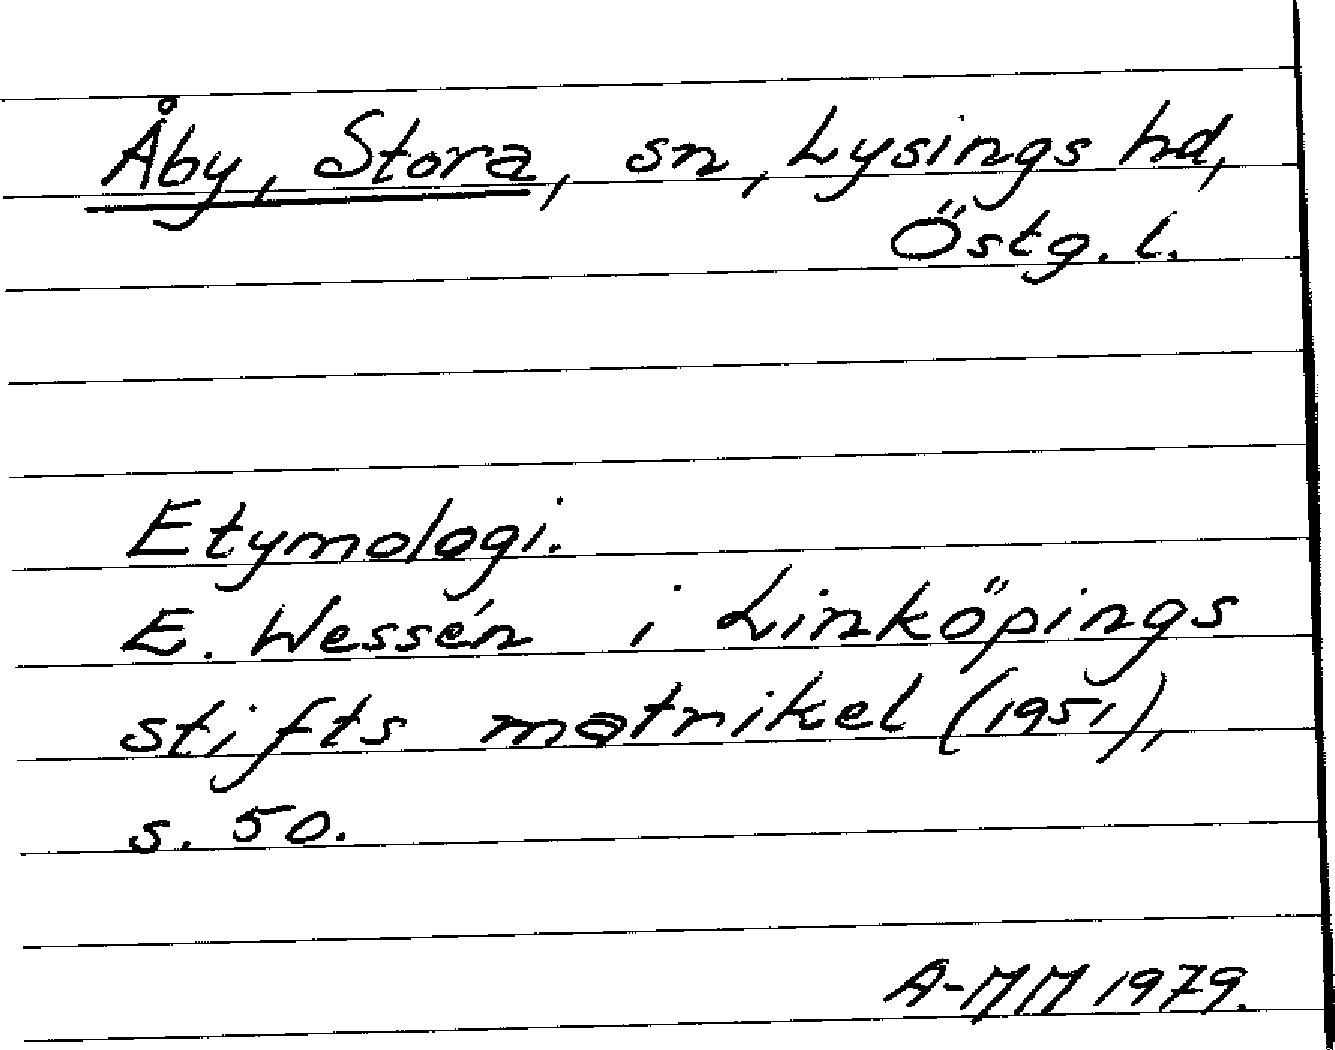 Åby, Stora, sn, Lysings hd,
Östg. l.
Etymologi.
E. Wessén i Linköpings
stifts matrikel (1951),
s. 50.
A-MM 1979.